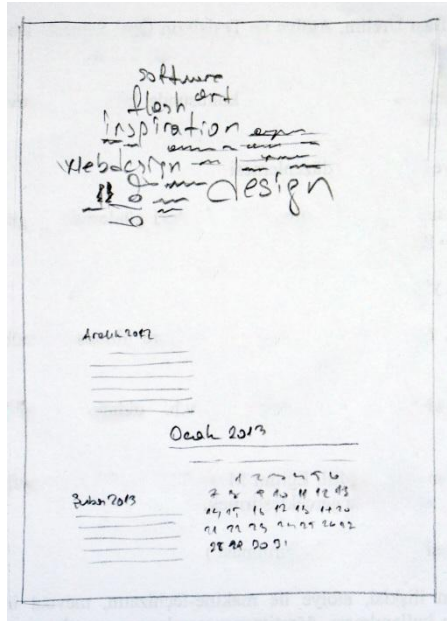 software
flash art
inspiration
webdesign
design
Aralık 2012
Ocak 2013
1 2 3 4 5 6
7 8 9 10 11 12 13
14 15 16 17 18 19 20
21 22 23 24 25 26 27
28 29 30 31
Şubat 2013